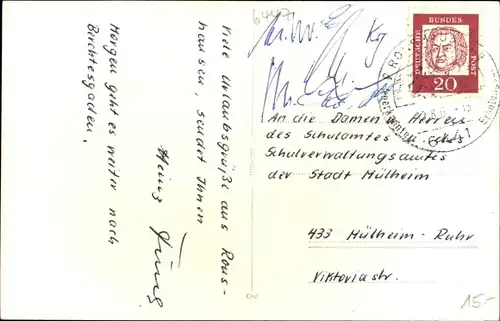 Viele Urlaubsgrüße aus Rons-
hausen, sendet Ihnen
Heinz
Morgen geht es weiter nach
Bechtesgaden.
6447
DEUTSCHE
BUNDES
POST
20
6441
An die Damen u. Herren
des Schulamtes u. des
Schulverwaltungsamtes
der Stadt Mülheim
433 Mülheim-Ruhr
Viktoriastr.
15.-